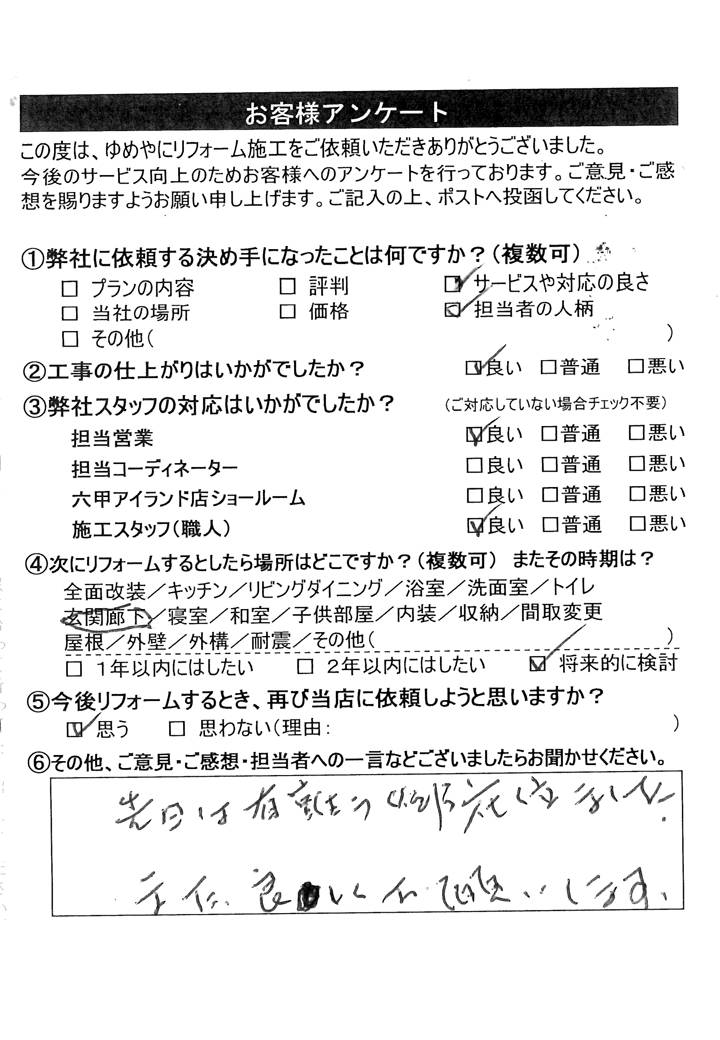 お客様アンケート
この度は、ゆめやにリフォーム施工をご依頼いただきありがとうございました。
今後のサービス向上のためお客様へのアンケートを行っております。ご意見・ご感
想を賜りますようお願い申し上げます。ご記入の上、ポストへ投函してください。
①弊社に依頼する決め手になったことは何ですか？(複数可)
□ プランの内容 □ 評判 ☑ サービスや対応の良さ
□ 当社の場所 □ 価格 ☑ 担当者の人柄
□ その他( )
②工事の仕上がりはいかがでしたか？ ☑良い □普通 □悪い
③弊社スタッフの対応はいかがでしたか？ (ご対応していない場合チェック不要)
担当営業 ☑良い □普通 □悪い
担当コーディネーター □良い □普通 □悪い
六甲アイランド店ショールーム □良い □普通 □悪い
施工スタッフ(職人) ☑良い □普通 □悪い
④次にリフォームするとしたら場所はどこですか？(複数可) またその時期は？
全面改装／キッチン／リビングダイニング／浴室／洗面室／トイレ
玄関廊下／寝室／和室／子供部屋／内装／収納／間取変更
屋根／外壁／外構／耐震／その他( )
□ 1年以内にはしたい □ 2年以内にはしたい ☑ 将来的に検討
⑤今後リフォームするとき、再び当店に依頼しようと思いますか？
☑ 思う □ 思わない(理由: )
⑥その他、ご意見・ご感想・担当者への一言などございましたらお聞かせください。
先日は有難う ました.
良 しくお願いします.